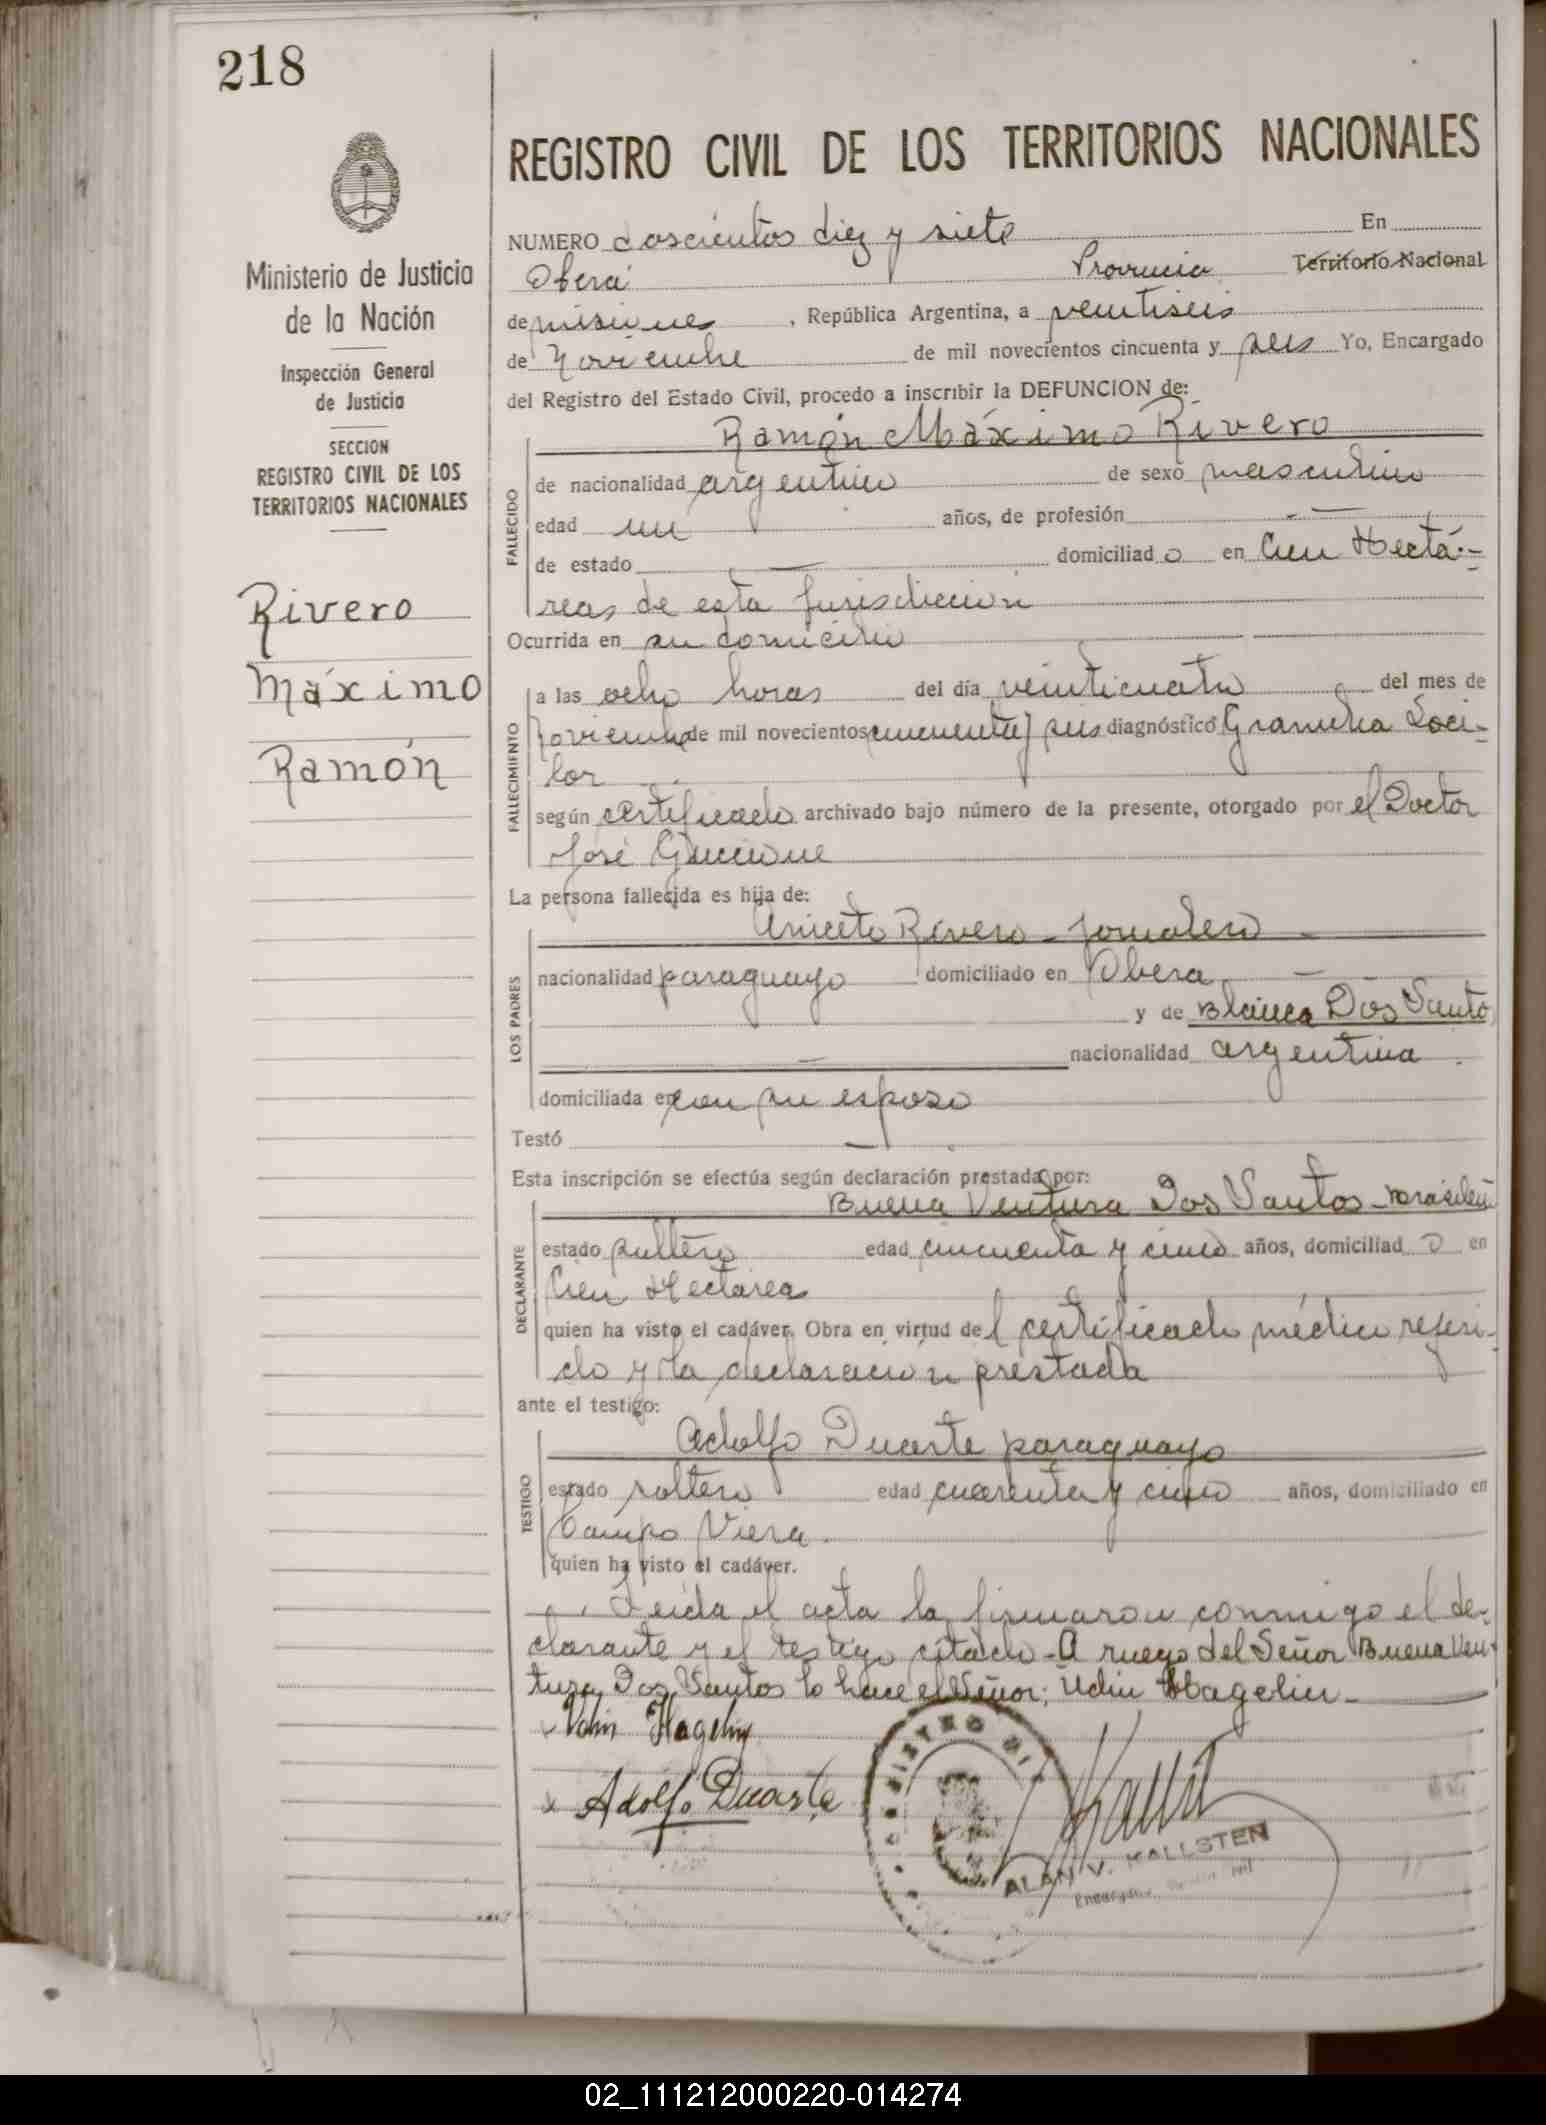 218
REGISTRO CIVIL DE LOS TERRITORIOS NACIONALES
Ministerio de Justicia
de la Nación
Inspección General
de Justicia
SECCION
REGISTRO CIVIL DE LOS
TERRITORIOS NACIONALES
Rivero
Máximo
Ramón
NUMERO doscientos diez y siete En
Oberá Provincia Territorio Nacional
de misiones, República Argentina, a veintiseis
de Noviembre de mil novecientos cincuenta y seis Yo, Encargado
del Registro del Estado Civil, procedo a inscribir la DEFUNCION de:
Ramón Máximo Rivero
FALLECIDO
de nacionalidad argentino de sexo masculino
edad un años, de profesión —
de estado — domiciliado en Cien Hectá-
reas de esta jurisdicción
Ocurrida en su domicilio
FALLECIMIENTO
a las ocho horas del día veinticuatro del mes de
Noviembre de mil novecientos cincuenta y seis diagnóstico
según certificado archivado bajo número de la presente, otorgado por el Doctor
José
La persona fallecida es hija de:
LOS PADRES
Aniceto Rivero - jornalero -
nacionalidad paraguayo domiciliado en Oberá —
y de Blanca Dos Santo
— nacionalidad argentina.
domiciliada en con su esposo
Testó —
Esta inscripción se efectúa según declaración prestada por:
DECLARANTE
Buena Ventura Dos Santos -
estado soltero edad cincuenta y cinco años, domiciliado en
Cien Hectarea
quien ha visto el cadáver. Obra en virtud del certificado médico referi-
do y la declaración prestada
ante el testigo:
TESTIGO
Adolfo Duarte paraguayo
estado soltero edad cuarenta y cinco años, domiciliado en
Campo Viera.
quien ha visto el cadáver.
Leida el acta la firmaron conmigo el de-
clarante y el testigo citado - A ruego del Señor Buena Ven-
tura Dos Santos lo hace el Señor: Hagelin -
Hagelin
Adolfo Duarte
REGISTRO
ALAN V. KALLSTEN
02_111212000220-014274